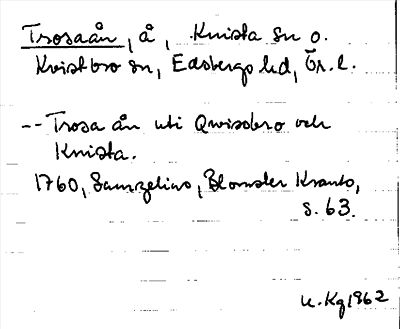 Trosaån, å, Knista sn o.
Kvistbro sn, Edsbergs hd, Ör. l.
-- Trosa ån uti Qwissbro och
Knista.
1760, Samzelius, Blomster Krants,
s. 63.
u. Kg 1962